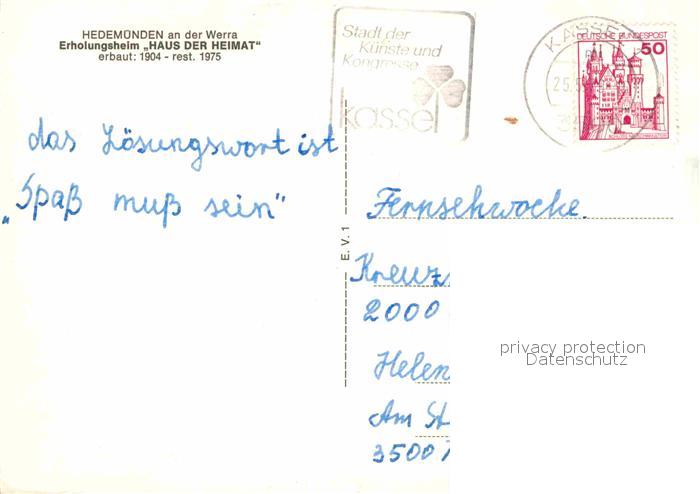 HEDEMÜNDEN an der Werra
Erholungsheim „HAUS DER HEIMAT“
erbaut: 1904 - rest. 1975
Stadt der
Künste und
Kongresse
kassel
KASSEL
DEUTSCHE BUNDESPOST
50
das Lösungswort ist
„Spaß muß sein"
E. V. 1
Fernsehwoche
Kreuz
2000
Helen
Am St
3500
privacy protection
Datenschutz